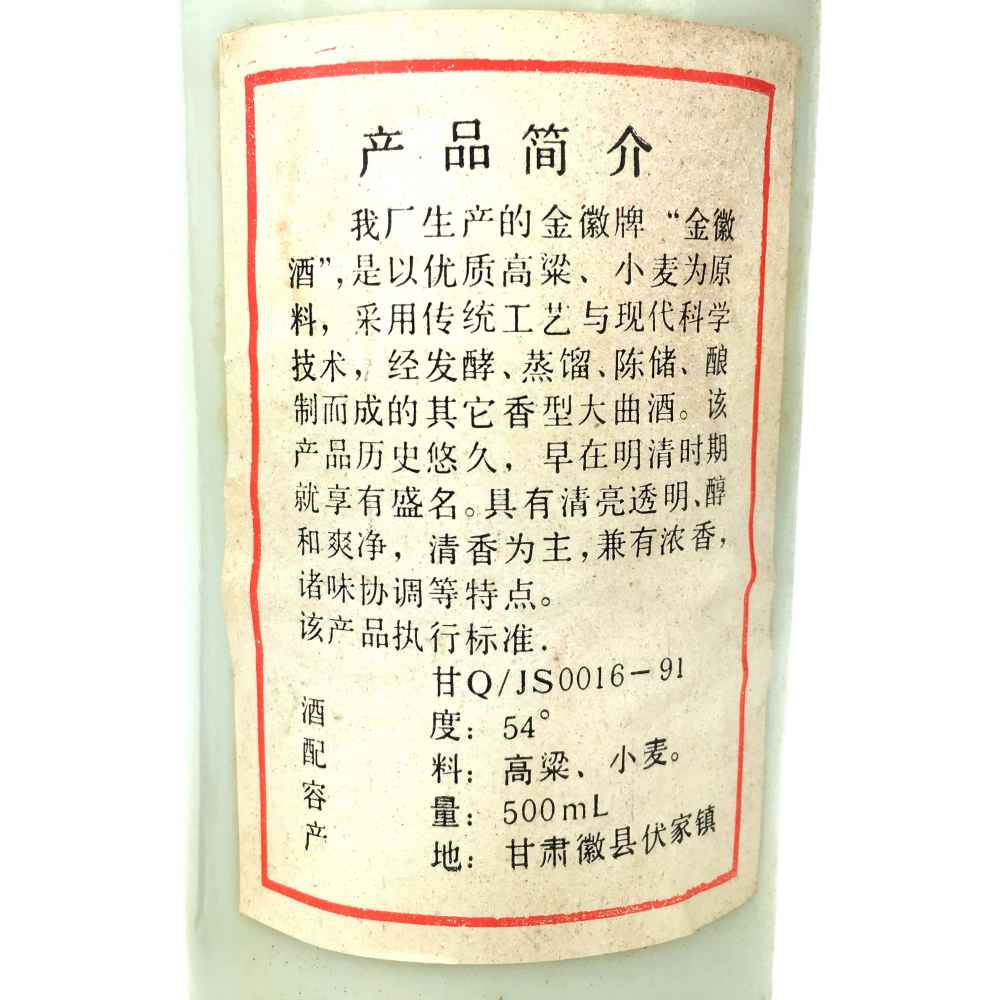 产品简介
我厂生产的金徽牌“金徽
酒”,是以优质高粱、小麦为原
料，采用传统工艺与现代科学
技术，经发酵、蒸馏、陈储、酿
制而成的其它香型大曲酒。该
产品历史悠久，早在明清时期
就享有盛名。具有清亮透明、醇
和爽净，清香为主,兼有浓香，
诸味协调等特点。
该产品执行标准.
甘Q/JS0016-91
酒度：54°
配料：高粱、小麦。
容量：500mL
产地：甘肃徽县伏家镇